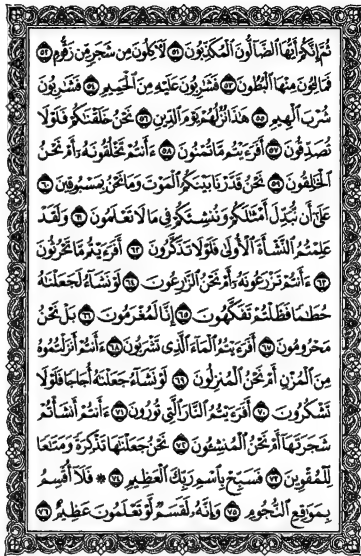 ثُمَّ إِنَّكُمْ أَيُّهَا الضَّالُّونَ الْمُكَذِّبُونَ ٥١ لَآكِلُونَ مِن شَجَرٍ مِّن زَقُّومٍ ٥٢
فَمَالِئُونَ مِنْهَا الْبُطُونَ ٥٣ فَشَارِبُونَ عَلَيْهِ مِنَ الْحَمِيمِ ٥٤ فَشَارِبُونَ
شُرْبَ الْهِيمِ ٥٥ هَٰذَا نُزُلُهُمْ يَوْمَ الدِّينِ ٥٦ نَحْنُ خَلَقْنَاكُمْ فَلَوْلَا
تُصَدِّقُونَ ٥٧ أَفَرَءَيْتُم مَّا تُمْنُونَ ٥٨ ءَأَنتُمْ تَخْلُقُونَهُ أَمْ نَحْنُ
الْخَالِقُونَ ٥٩ نَحْنُ قَدَّرْنَا بَيْنَكُمُ الْمَوْتَ وَمَا نَحْنُ بِمَسْبُوقِينَ ٦٠
عَلَىٰ أَن نُّبَدِّلَ أَمْثَالَكُمْ وَنُنشِئَكُمْ فِي مَا لَا تَعْلَمُونَ ٦١ وَلَقَدْ
عَلِمْتُمُ النَّشْأَةَ الْأُولَىٰ فَلَوْلَا تَذَكَّرُونَ ٦٢ أَفَرَءَيْتُم مَّا تَحْرُثُونَ
٦٣ ءَأَنتُمْ تَزْرَعُونَهُ أَمْ نَحْنُ الزَّارِعُونَ ٦٤ لَوْ نَشَاءُ لَجَعَلْنَاهُ
حُطَامًا فَظَلْتُمْ تَفَكَّهُونَ ٦٥ إِنَّا لَمُغْرَمُونَ ٦٦ بَلْ نَحْنُ
مَحْرُومُونَ ٦٧ أَفَرَءَيْتُمُ الْمَاءَ الَّذِي تَشْرَبُونَ ٦٨ ءَأَنتُمْ أَنزَلْتُمُوهُ
مِنَ الْمُزْنِ أَمْ نَحْنُ الْمُنزِلُونَ ٦٩ لَوْ نَشَاءُ جَعَلْنَاهُ أُجَاجًا فَلَوْلَا
تَشْكُرُونَ ٧٠ أَفَرَءَيْتُمُ النَّارَ الَّتِي تُورُونَ ٧١ ءَأَنتُمْ أَنشَأْتُمْ
شَجَرَتَهَا أَمْ نَحْنُ الْمُنشِئُونَ ٧٢ نَحْنُ جَعَلْنَاهَا تَذْكِرَةً وَمَتَاعًا
لِّلْمُقْوِينَ ٧٣ فَسَبِّحْ بِاسْمِ رَبِّكَ الْعَظِيمِ ٧٤ * فَلَا أُقْسِمُ
بِمَوَاقِعِ النُّجُومِ ٧٥ وَإِنَّهُ لَقَسَمٌ لَّوْ تَعْلَمُونَ عَظِيمٌ ٧٦